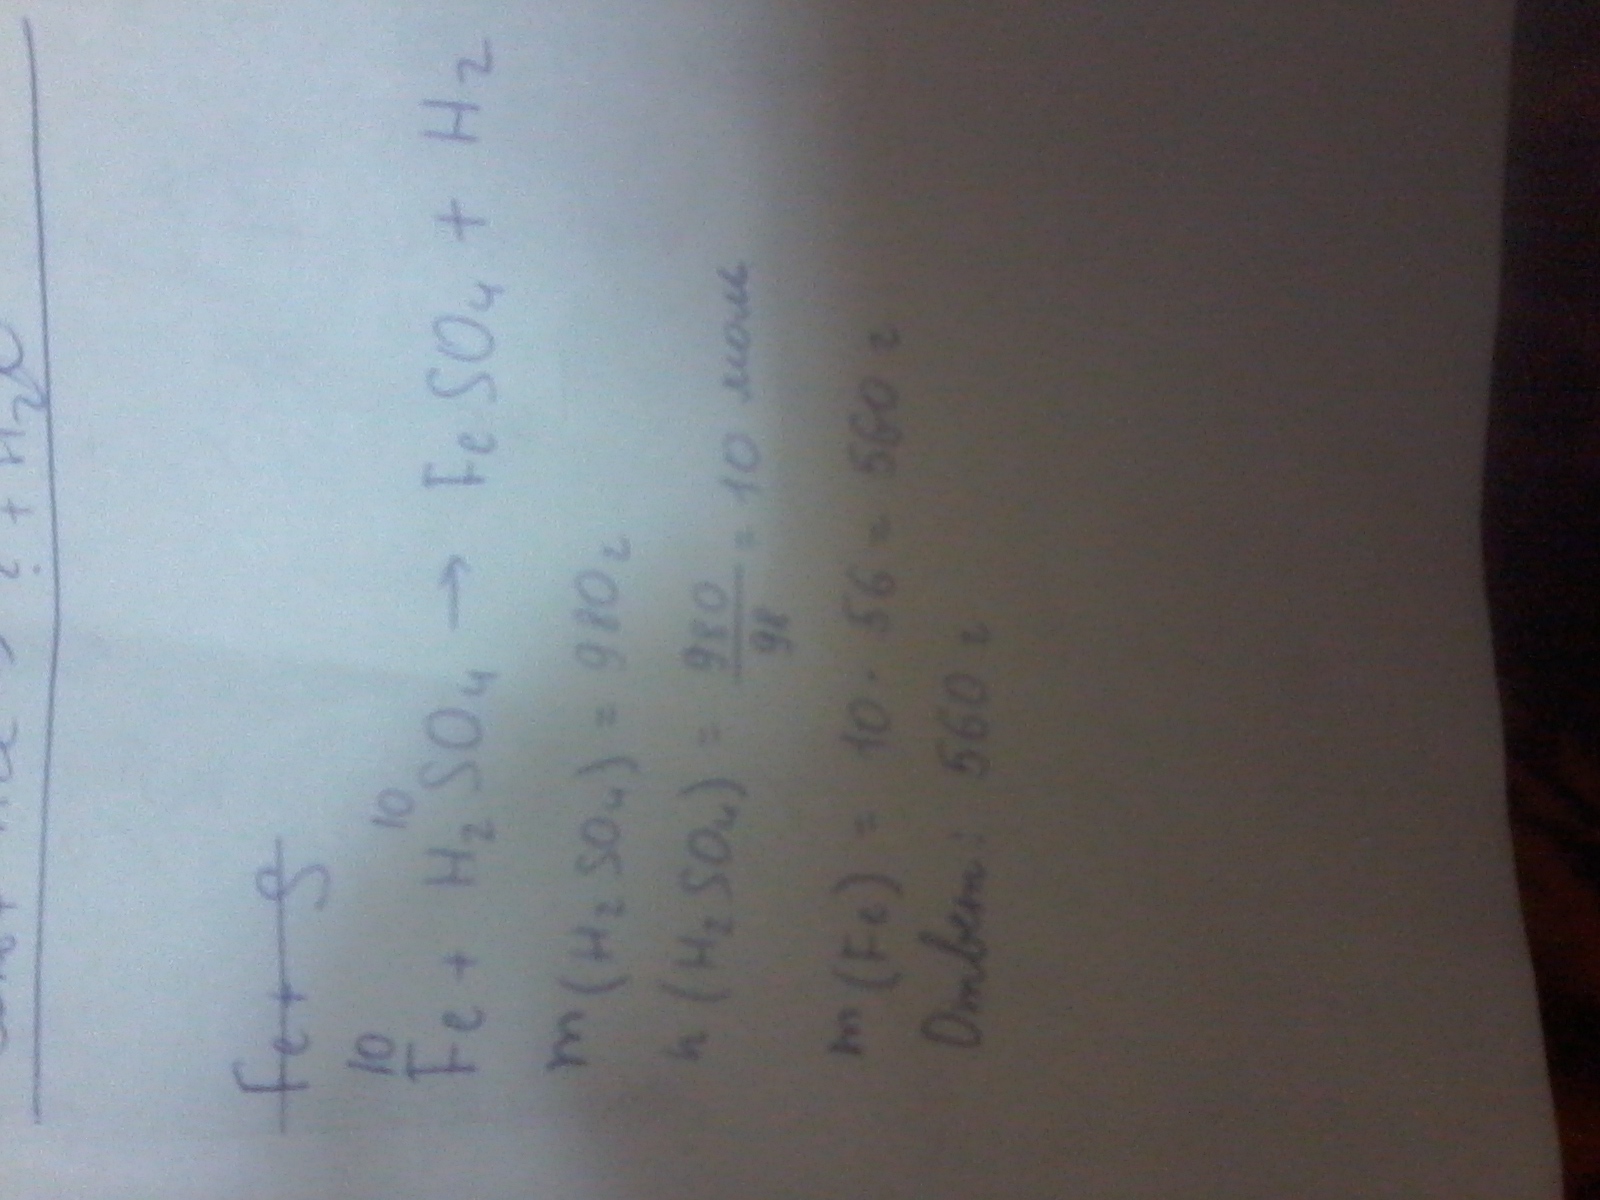 ? + H₂O
Fe + S
10 10
Fe + H₂SO₄ → FeSO₄ + H₂
m(H₂SO₄) = 980 г
n(H₂SO₄) = 980/98 = 10 моль
m(Fe) = 10 · 56 = 560 г
Ответ: 560 г